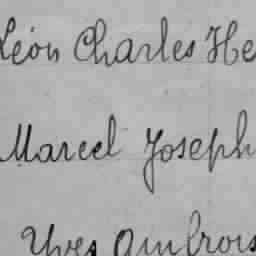 Léon Charles He
Marcel Joseph
Yves Ambrois